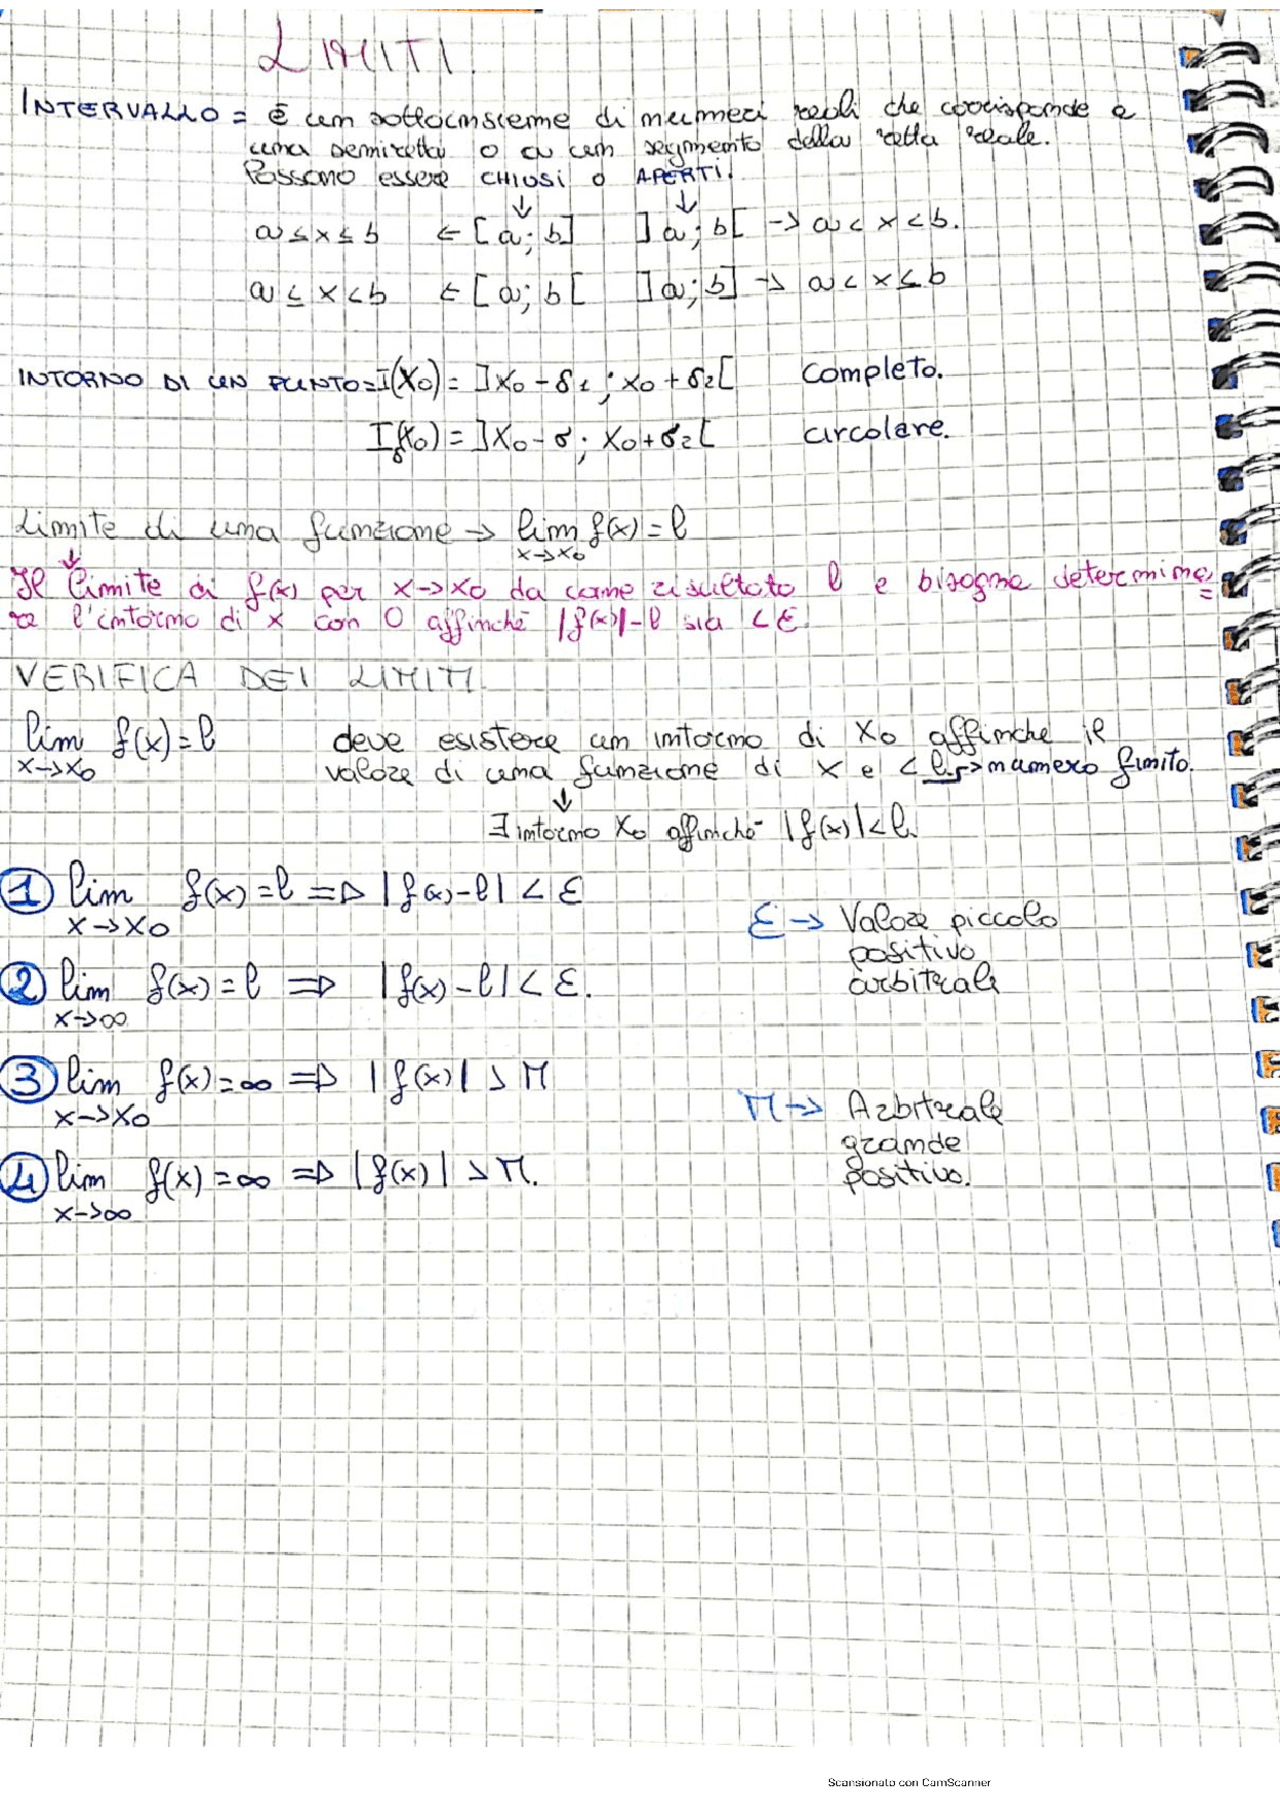 LIMITI.
INTERVALLO = è un sottoinsieme di numeri reali che corrisponde a
una semiretta o a un segmento della retta reale.
Possono essere CHIUSI o APERTI.
↓ ↓
a ≤ x ≤ b ← [a; b] ]a; b[ → a < x < b.
a ≤ x < b ← [a; b[ ]a; b] → a < x ≤ b
INTORNO DI UN PUNTO = I(X0) = ]X0 - δ1 ; X0 + δ2[ completo.
Iδ(X0) = ]X0 - δ ; X0 + δ2[ circolare.
Limite di una funzione → lim f(x) = l
x→x0
↓
Il limite di f(x) per x→x0 da come risultato l e bisogna determina=
re l'intorno di x con 0 affinché |f(x)|-l sia < ε.
VERIFICA DEI LIMITI.
lim f(x) = l deve esistere un intorno di X0 affinche il
x→x0 valore di una funzione di x e < l → numero finito.
↓
∃ intorno X0 affinché |f(x)| < l.
① lim f(x) = l ⇒ |f(x) - l| < ε
x→x0
ε → Valore piccolo
positivo
arbitrale
② lim f(x) = l ⇒ |f(x) - l| < ε.
x→∞
③ lim f(x) = ∞ ⇒ |f(x)| > M
x→x0
M → Arbitrale
grande
positivo.
④ lim f(x) = ∞ ⇒ |f(x)| > M.
x→∞
Scansionato con CamScanner